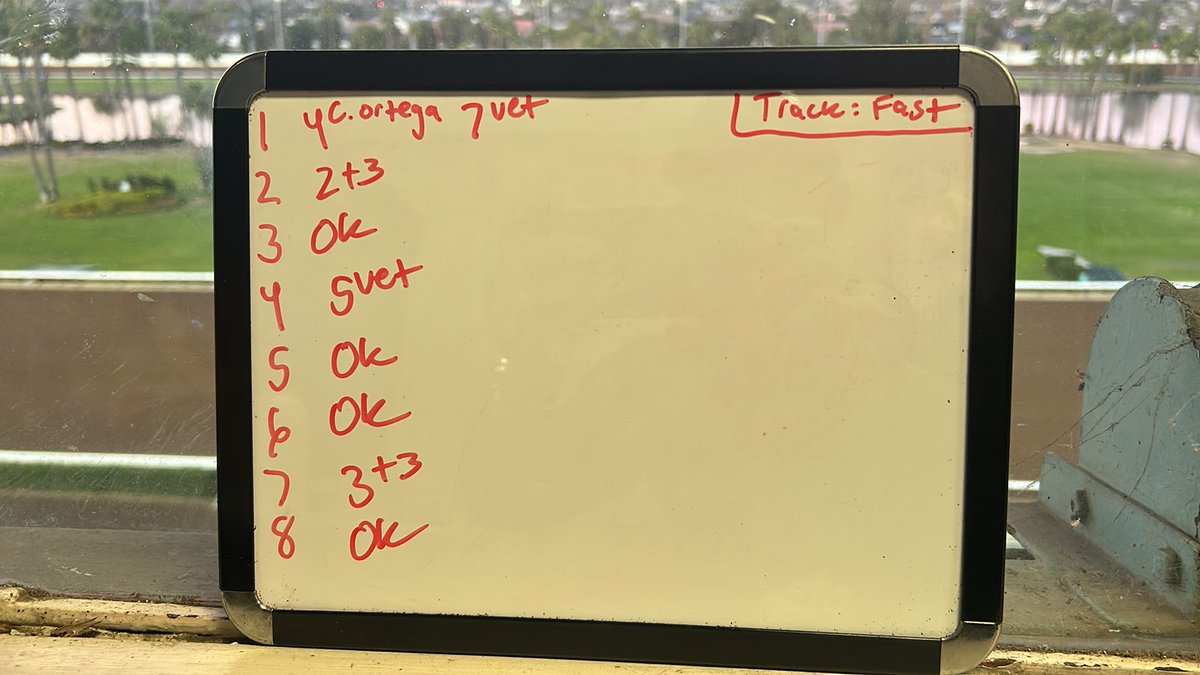 1 4 C. Ortega 7 vet
Track: Fast
2 2+3
3 Ok
4 5 vet
5 Ok
6 Ok
7 3+3
8 Ok